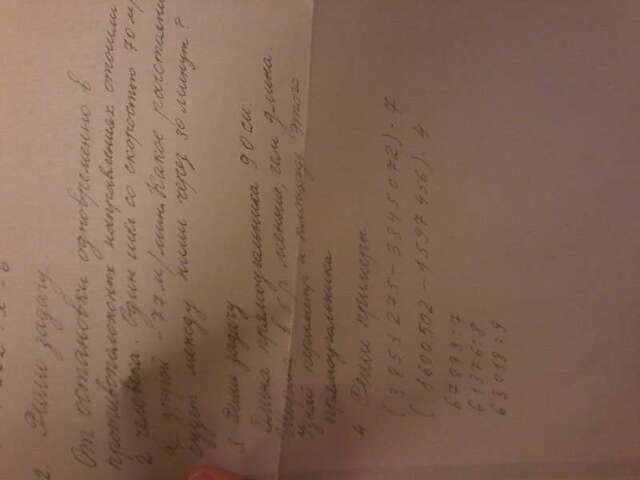 2. Реши задачу.
От остановки одновременно в
противоположных направлениях отошли
2 человека. Один шёл со скоростью 70 м/
а другой - 77 м/мин. Какое расстояни
будет между ними через 30 минут?
3 Реши задачу
Длина прямоугольника 90 см.
Ширина в 5 р меньше, чем длина.
Узнай периметр и площадь этого
прямоугольника
4 Реши примеры
(3853275-3845072)·7
(1600502-1597456)·4
67893:7
61376:8
63018:9